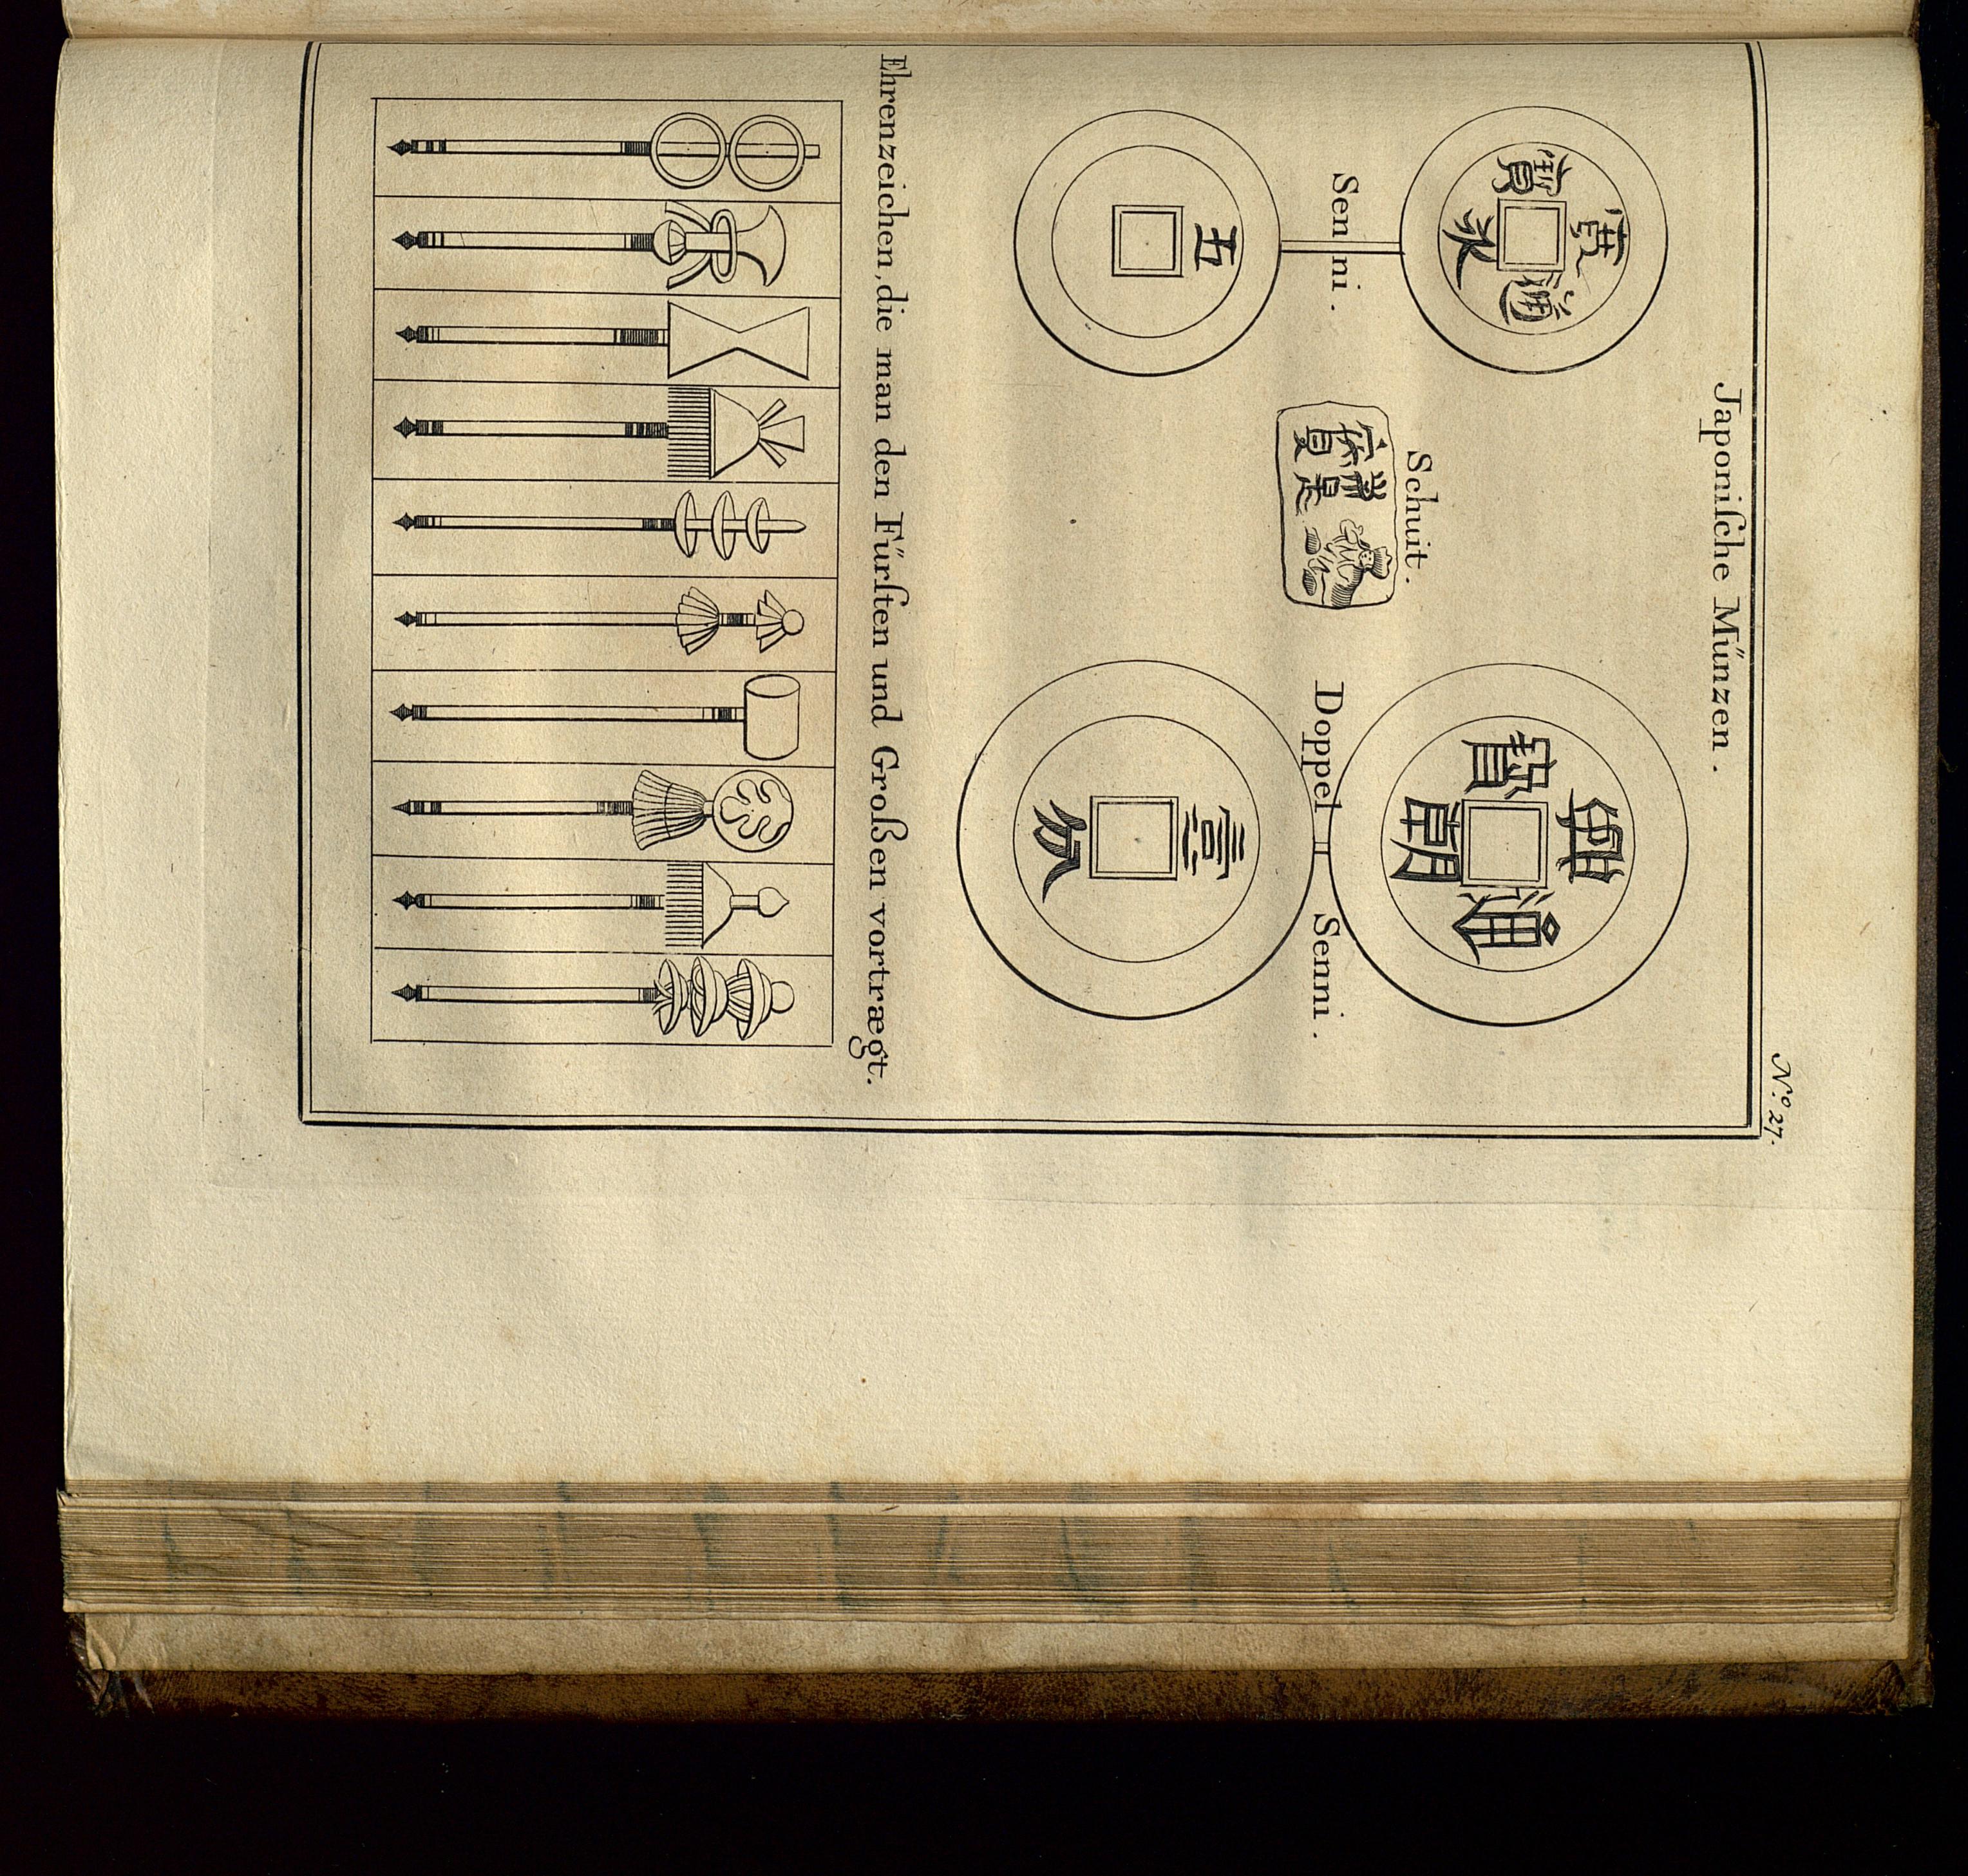 Nº. 27.
Japoniſche Münzen.
寛永通寳
興朝通寶
Schuit.
常是
寳
Senni.
Doppel Senni.
五
壹
分
Ehrenzeichen, die man den Fürſten und Großen vortrægt.